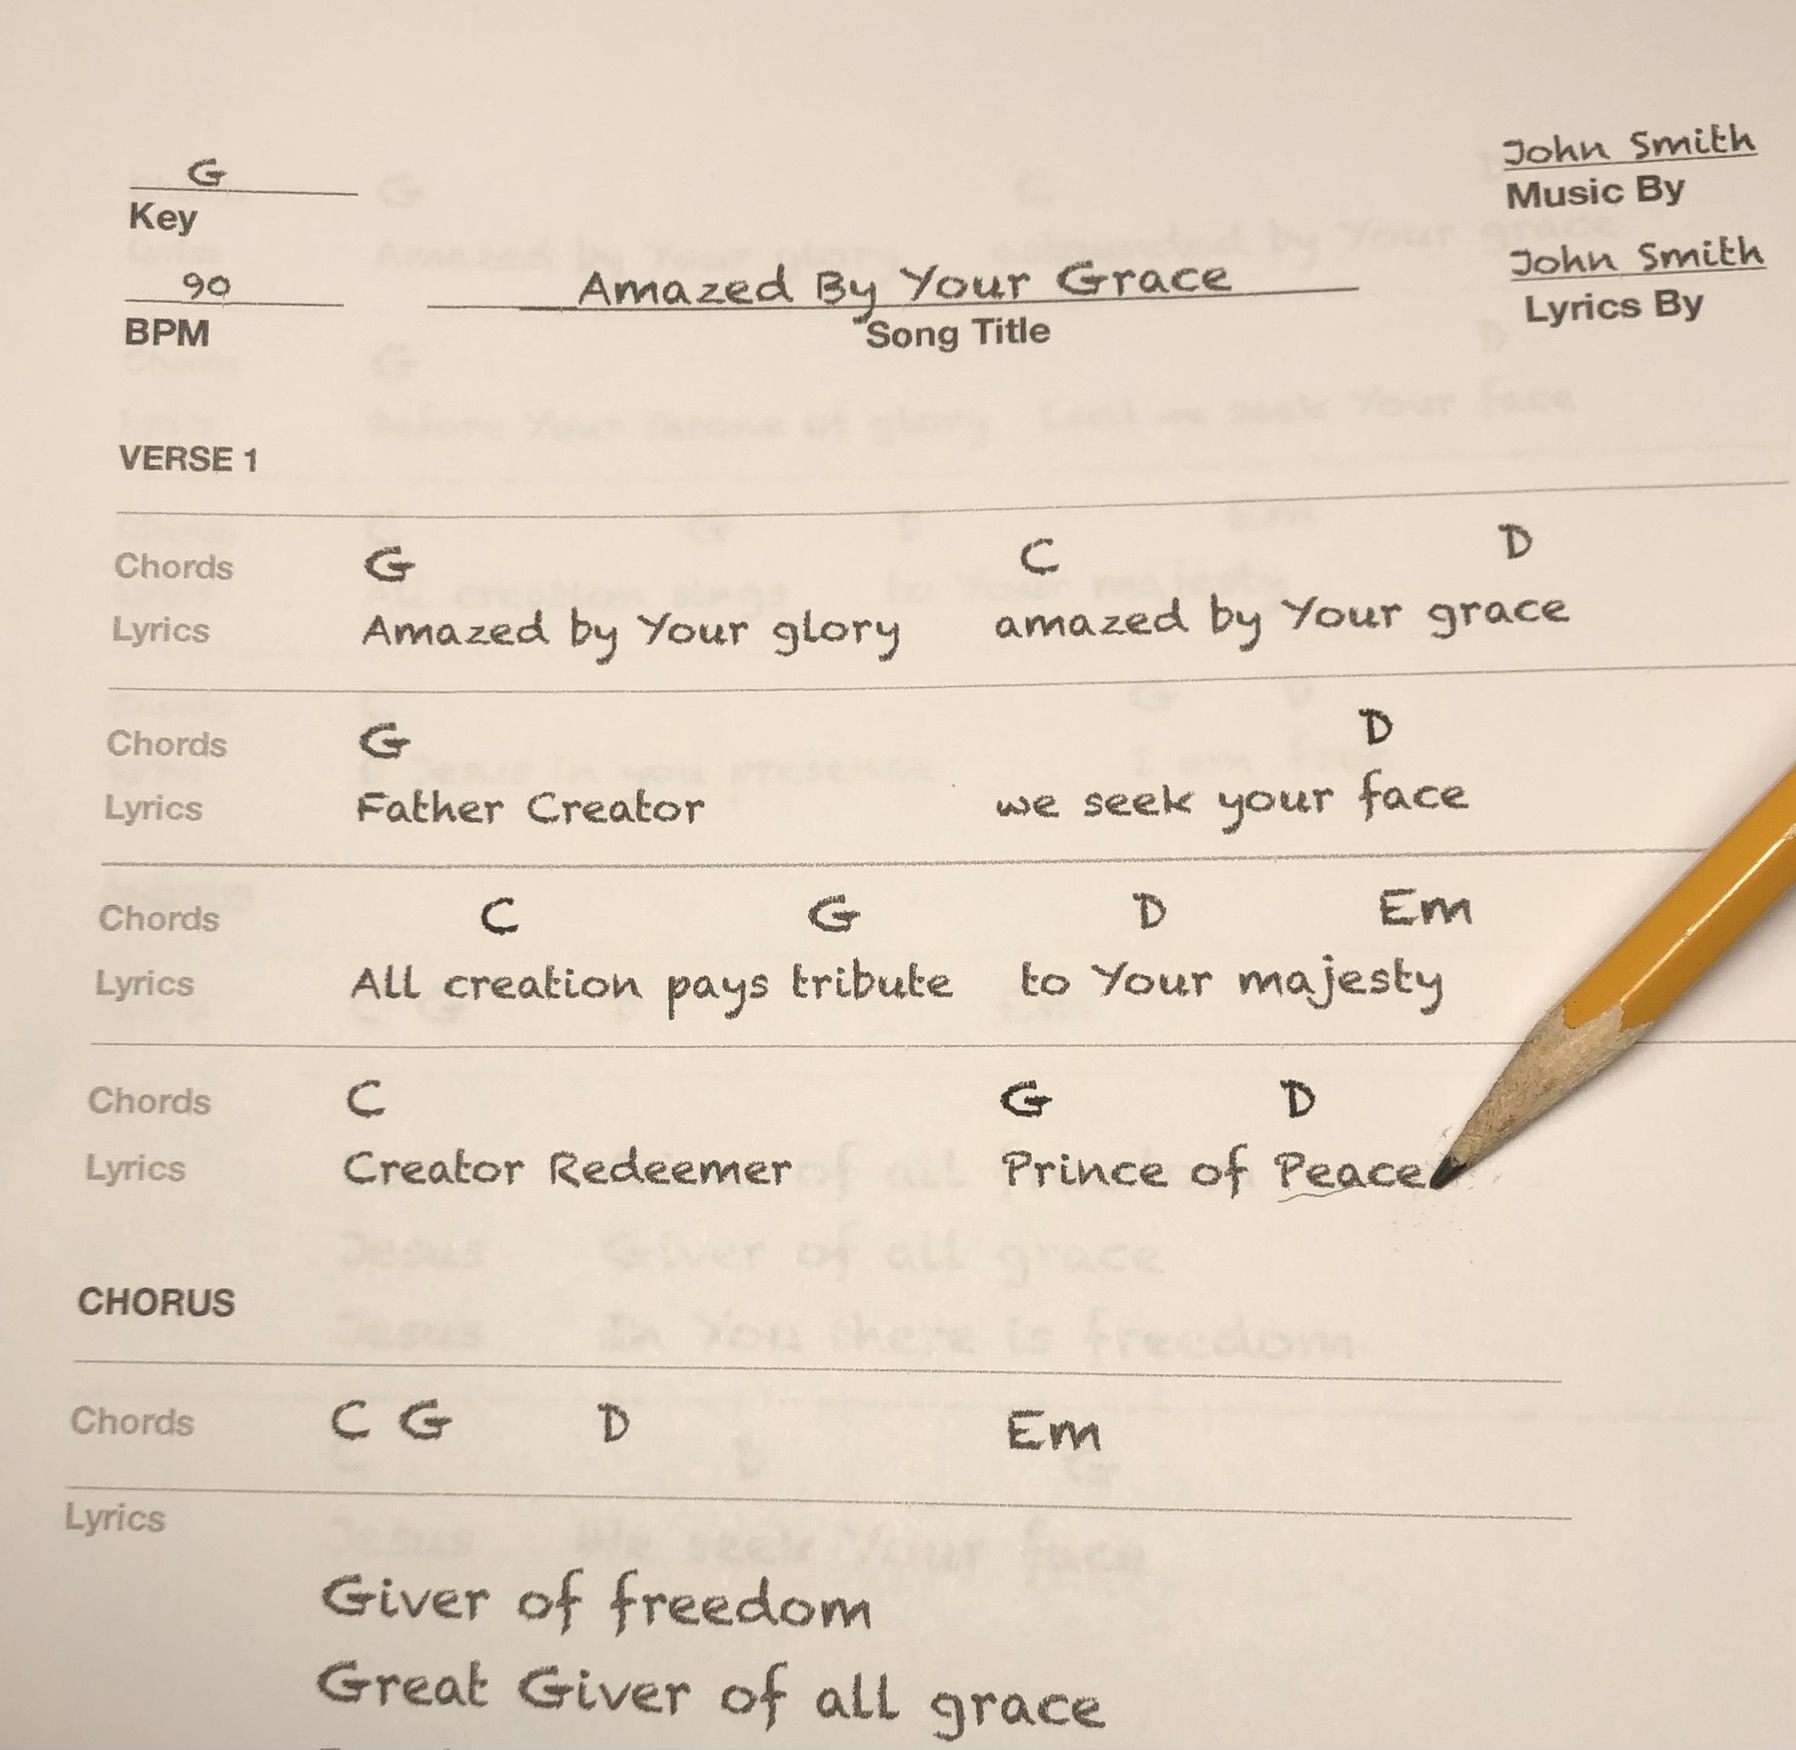 G
Key
John Smith
Music By
90
BPM
Amazed By Your Grace
Song Title
John Smith
Lyrics By
VERSE 1
Chords G C D
Lyrics Amazed by Your glory amazed by Your grace
Chords G D
Lyrics Father Creator we seek your face
Chords C G D Em
Lyrics All creation pays tribute to Your majesty
Chords C G D
Lyrics Creator Redeemer Prince of Peace
CHORUS
Chords C G D Em
Lyrics
Giver of freedom
Great Giver of all grace